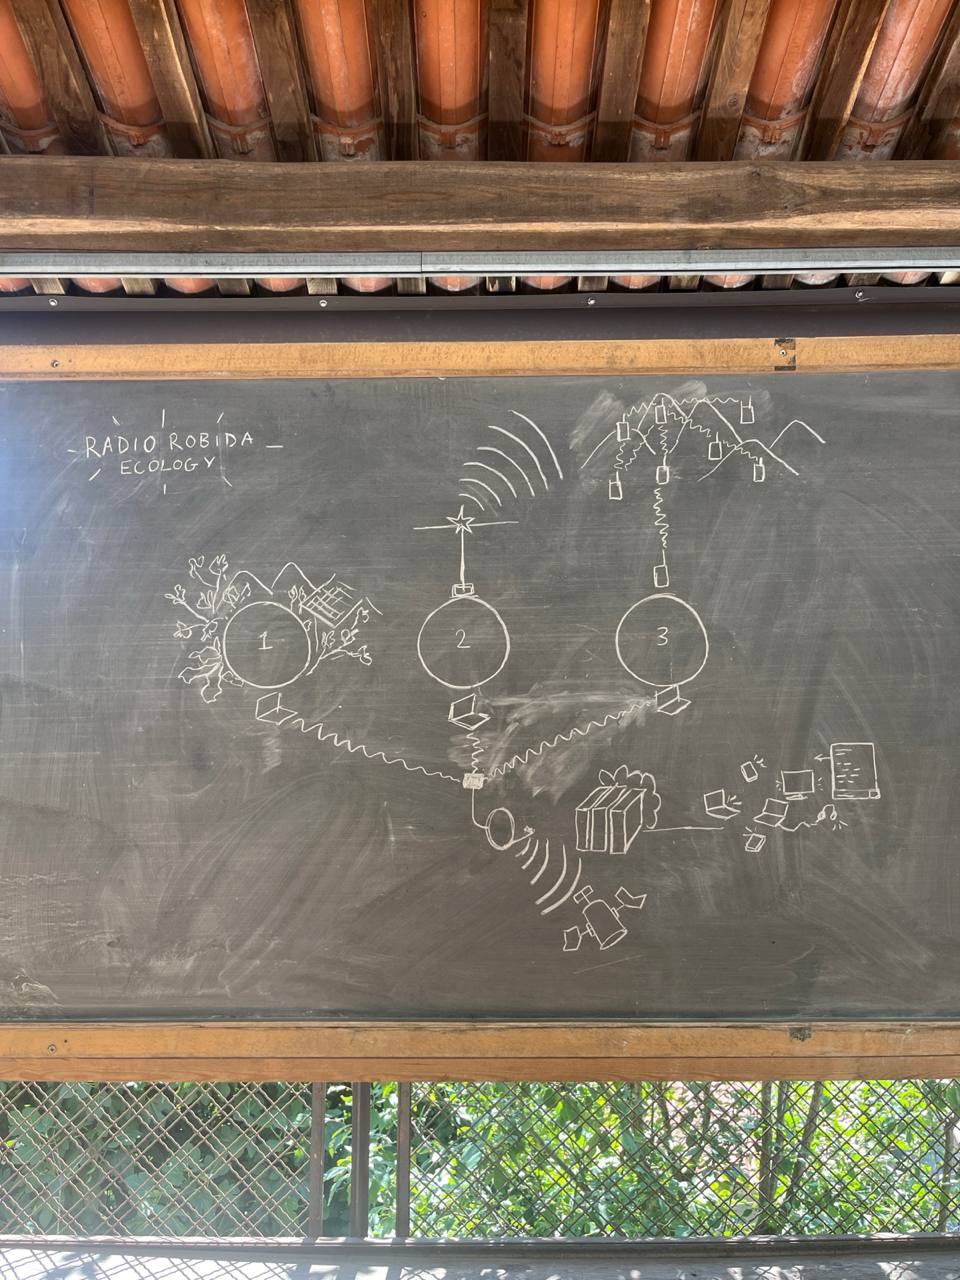 RADIO ROBIDA
ECOLOGY
1
2
3